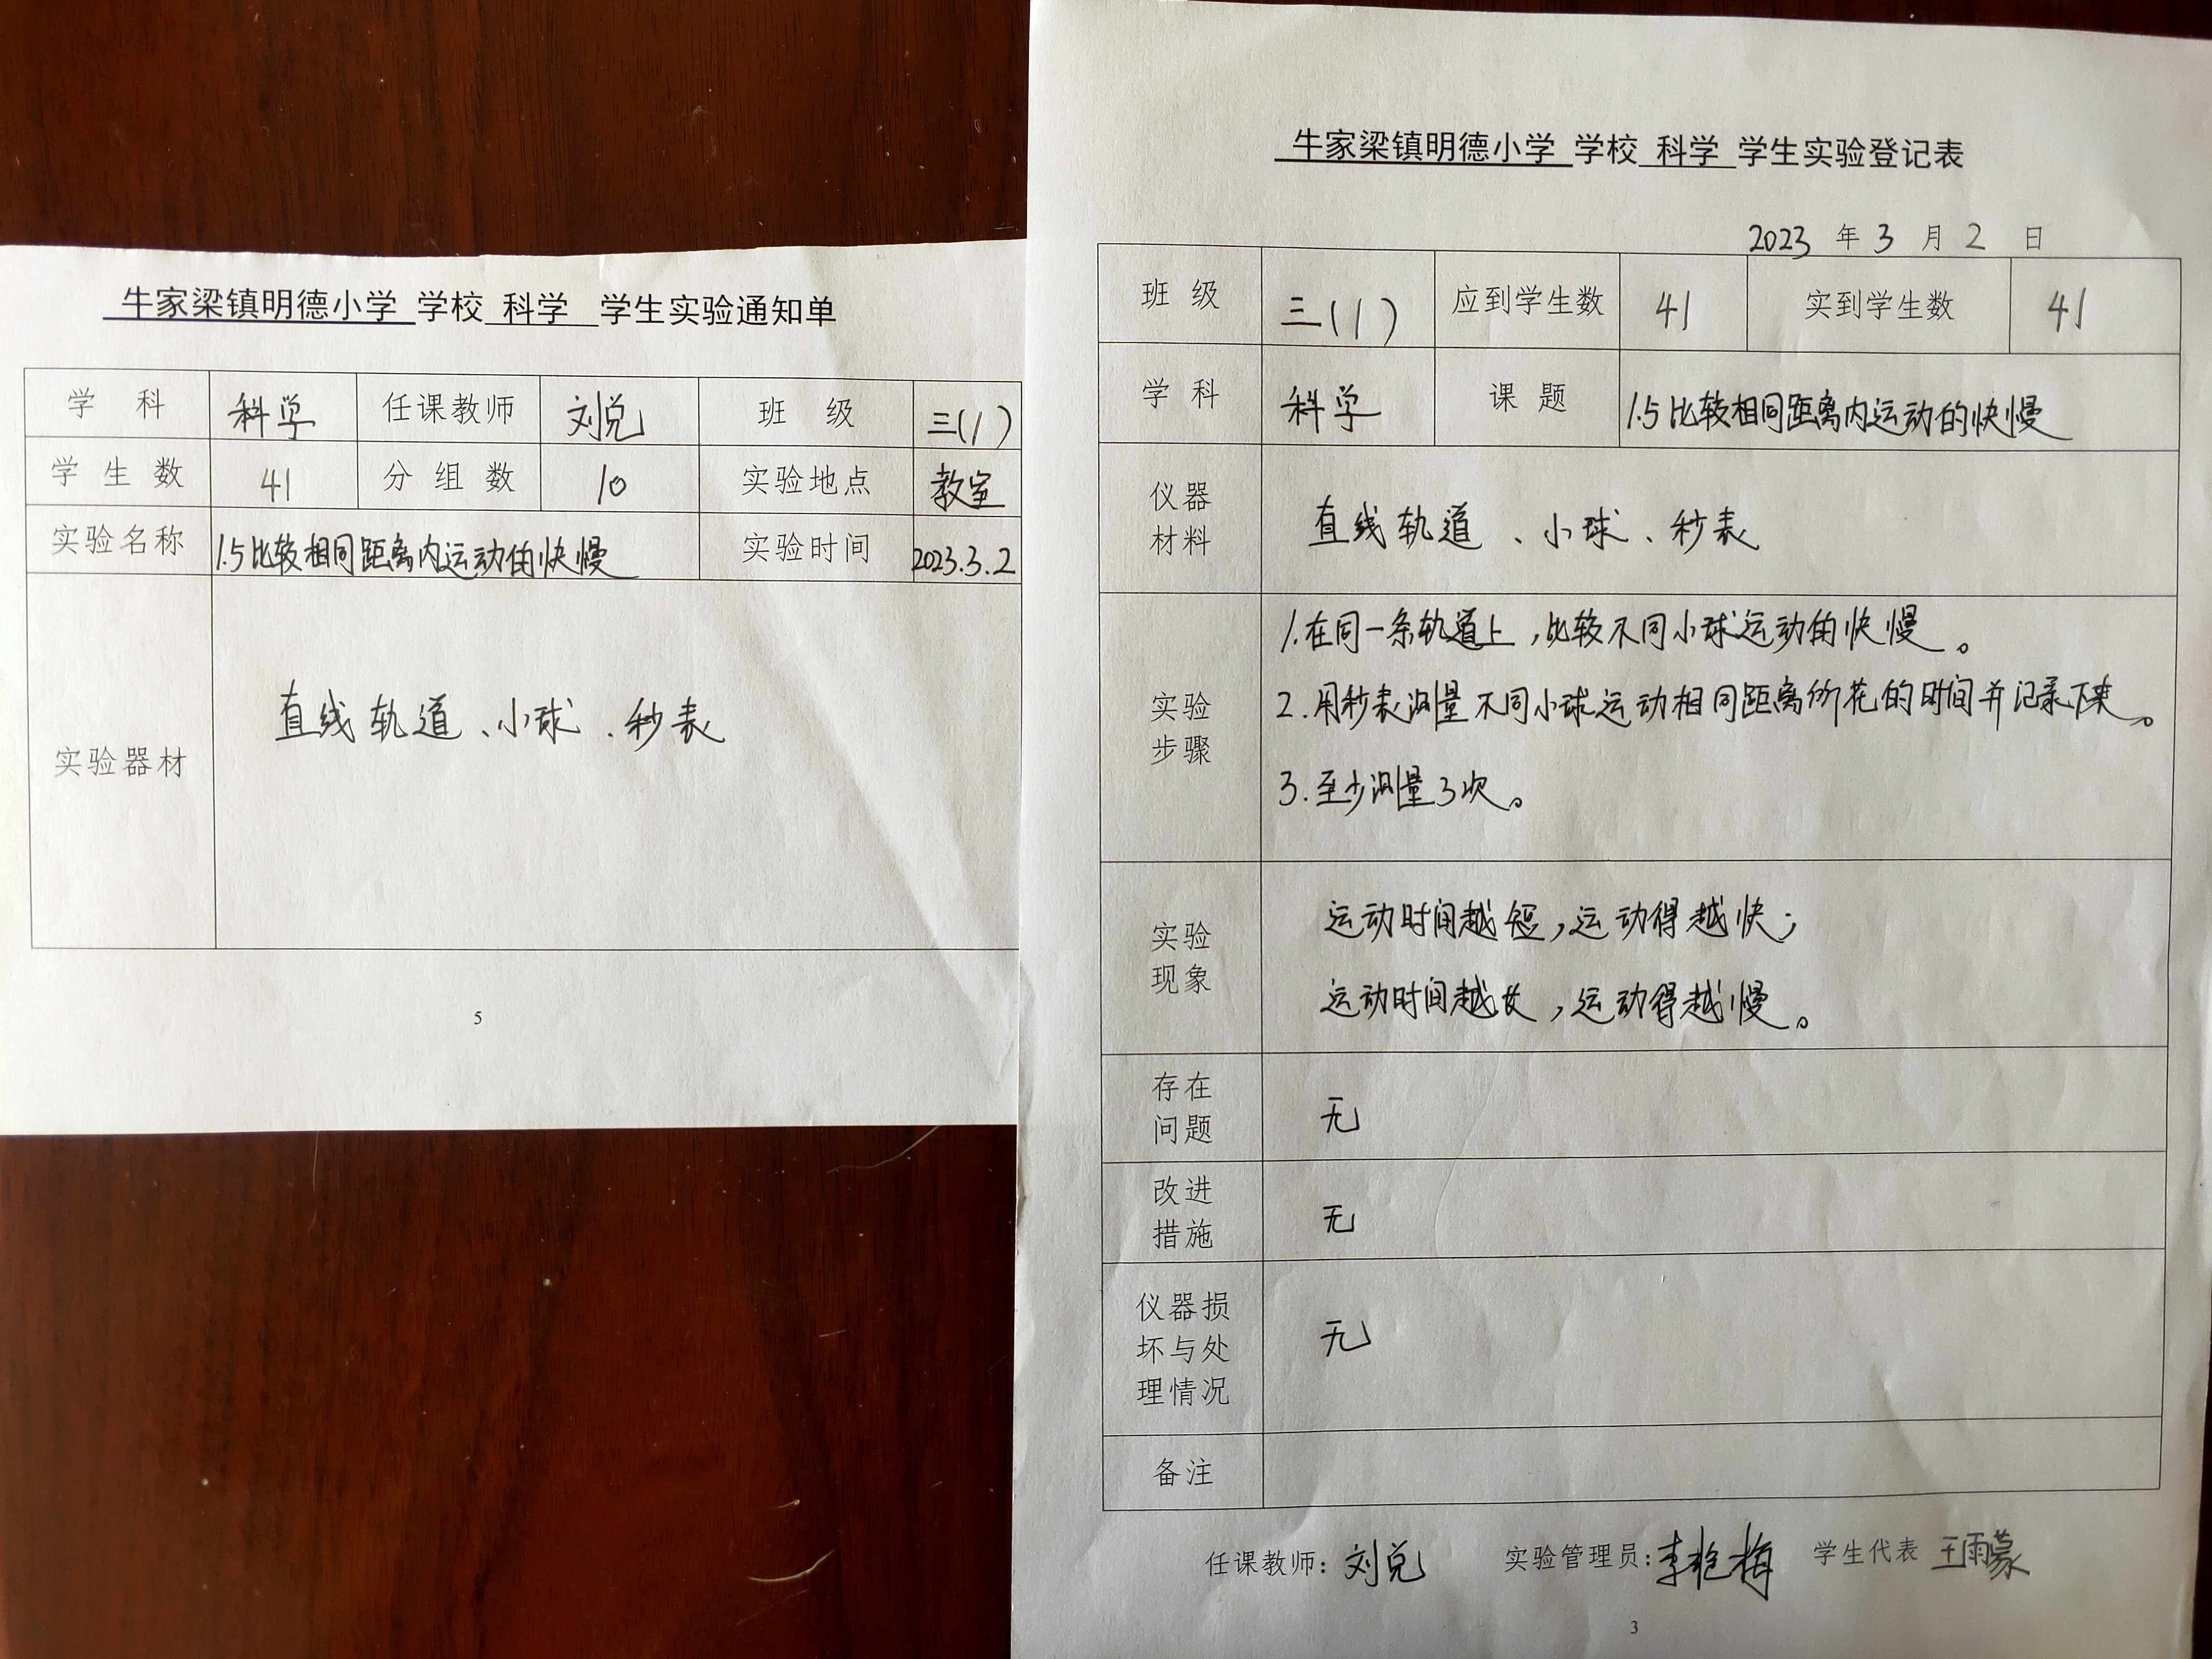 牛家梁镇明德小学 学校 科学 学生实验通知单
学 科 科学 任课教师 刘兑 班 级 三(1)
学 生 数 41 分 组 数 10 实验地点 教室
实验名称 1.5比较相同距离内运动的快慢 实验时间 2023.3.2
实验器材 直线轨道、小球、秒表
5
牛家梁镇明德小学 学校 科学 学生实验登记表
2023 年 3 月 2 日
班 级 三(1) 应到学生数 41 实到学生数 41
学 科 科学 课 题 1.5比较相同距离内运动的快慢
仪器
材料
直线轨道、小球、秒表
实验
步骤
1.在同一条轨道上,比较不同小球运动的快慢。
2.用秒表测量不同小球运动相同距离所花的时间并记录下来。
3.至少测量3次。
实验
现象
运动时间越短,运动得越快;
运动时间越长,运动得越慢。
存在
问题
无
改进
措施
无
仪器损
坏与处
理情况
无
备注
任课教师: 刘兑 实验管理员: 李艳梅 学生代表 王雨蒙
3